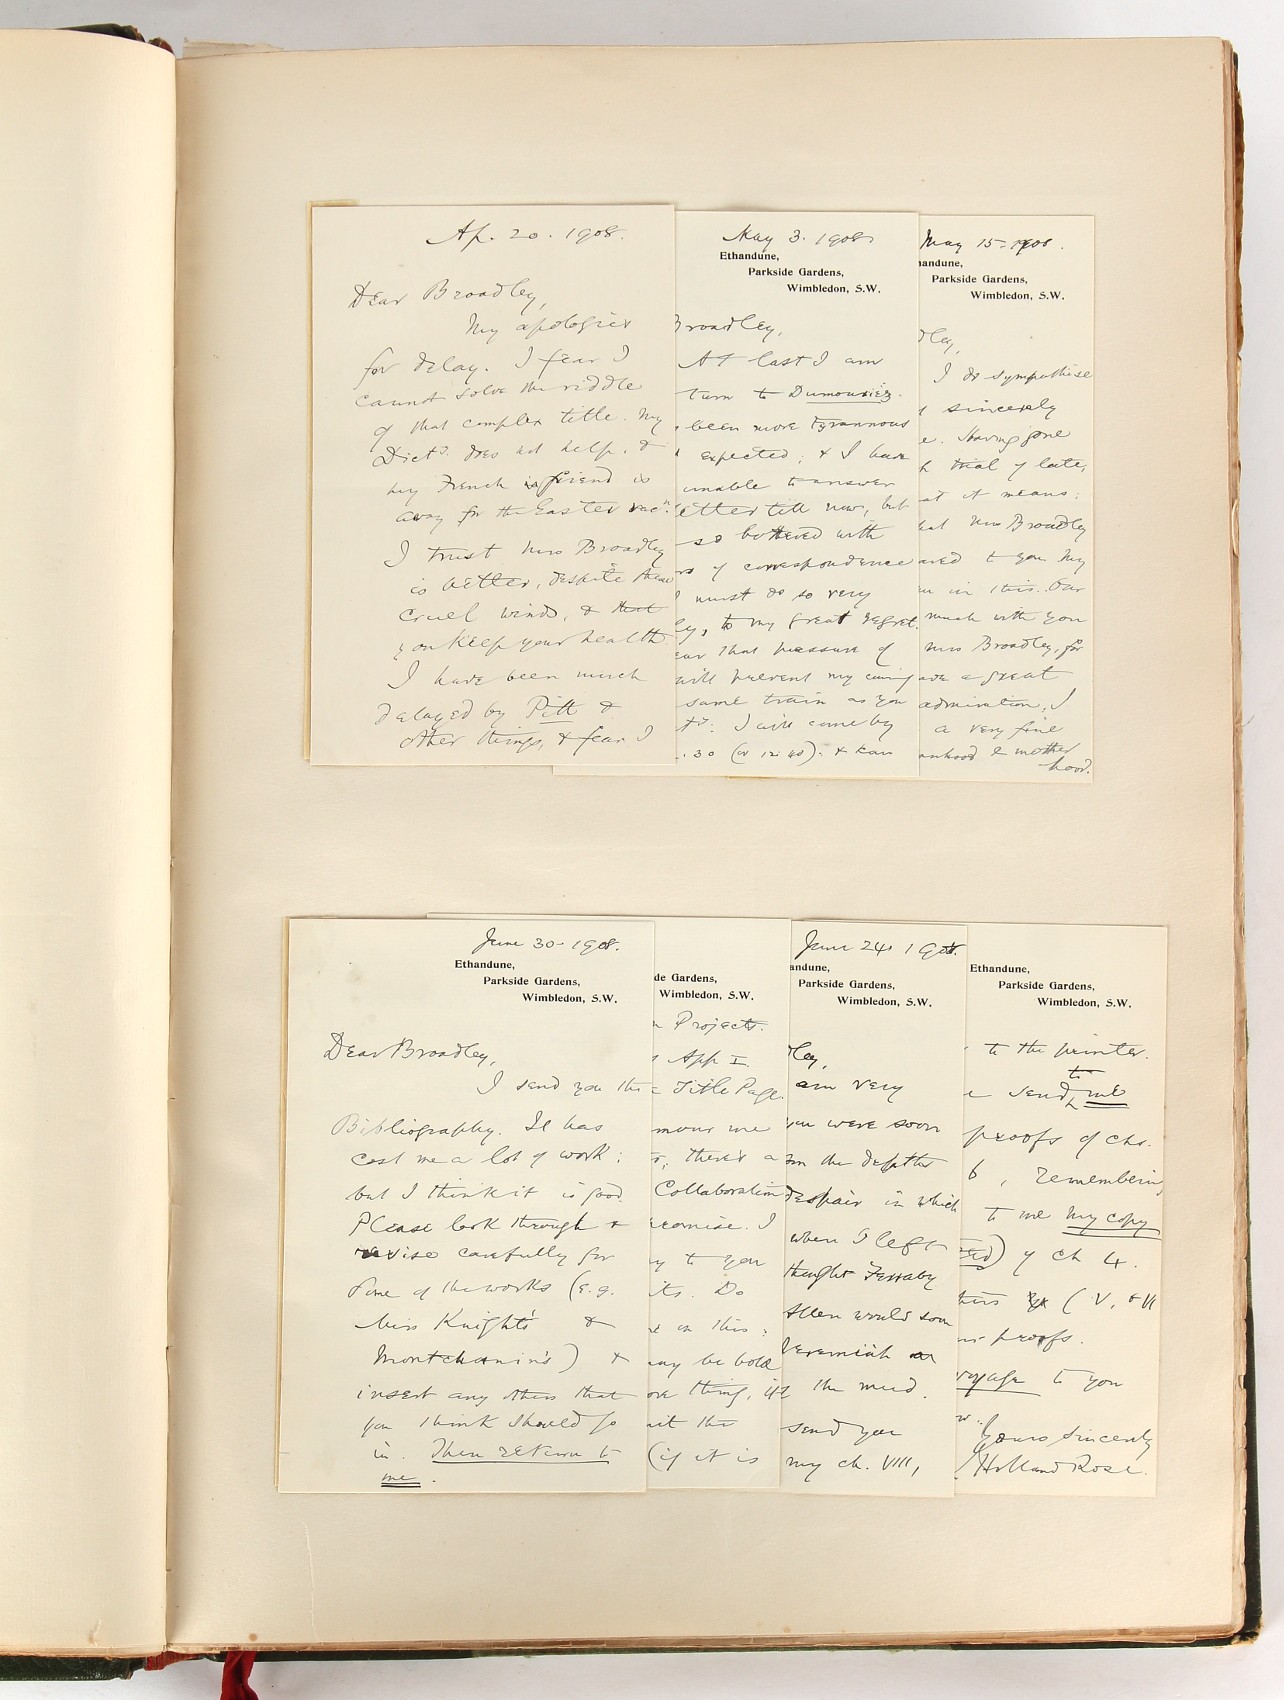 Ap. 20. 1908.
Dear Broadley,
My apologies
for delay. I fear I
cannot solve the riddle
of that complex title. My
Dicty. does not help, &
my French friend is
away for the Easter vacn.
I trust Mrs Broadley
is better, despite these
cruel winds, & that
you keep your health.
I have been much
delayed by Pitt &
other things, & fear I
May 3. 1908.
Ethandune,
Parkside Gardens,
Wimbledon, S.W.
Broadley,
At last I am
turn to Dumouriez.
been more tyrannous
expected; & I have
unable to answer
letter till now, but
so bothered with
of correspondence
I must do so very
to my great regret.
that pressure of
will prevent my coming
same train as you
I will come by
.30 (or 12.40). & can
May 15. 1908.
handune,
Parkside Gardens,
Wimbledon, S.W.
dley,
I do sympathise
sincerely
Having gone
trial of late,
at it means:
hat Mrs Broadley
to you. My
in this. Our
much with you
Mrs Broadley, for
have a great
admiration; I
a very fine
& mother
hood.
June 30. 1908.
Ethandune,
Parkside Gardens,
Wimbledon, S.W.
Dear Broadley,
I send you the
Bibliography. It has
cost me a lot of work:
but I think it is good.
Please look through &
revise carefully for
some of the works (e.g.
Miss Knight's &
Montchanin's) &
insert any others that
you think should go
in. Then return to
me.
de Gardens,
Wimbledon, S.W.
Projects.
App I.
Title Page.
me
there's a
Collaboration
promise. I
to you
Do
in this:
may be bold
thing, if
the
(if it is
June 24. 1908.
andune,
Parkside Gardens,
Wimbledon, S.W.
dley,
am very
you were soon
the depths
despair in which
when I left
thought Ferraby
Allen would soon
Jeremiah
the mud.
send you
my ch. VIII,
Ethandune,
Parkside Gardens,
Wimbledon, S.W.
to the printer.
send to me
proofs of chs.
6, remembering
to me my copy
of ch 4.
(V, & VI
proofs.
voyage to you
Yours sincerely
J Holland Rose.